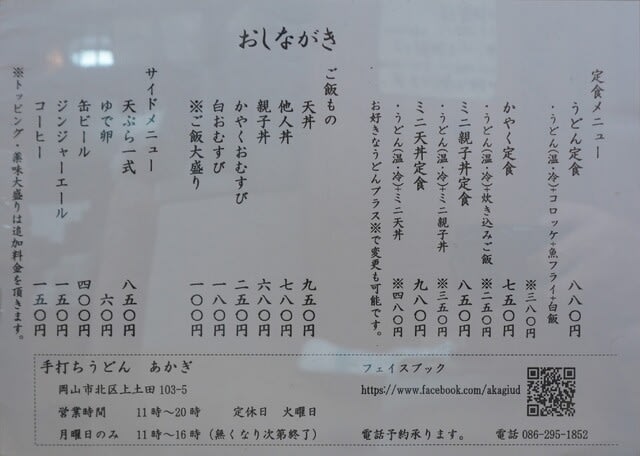 おしながき
定食メニュー
うどん定食 八八〇円
・うどん(温・冷)+コロッケ+魚フライ+白飯
※三八〇円
かやく定食 七五〇円
・うどん(温・冷)+炊き込みご飯 ※二五〇円
ミニ親子丼定食 八五〇円
・うどん(温・冷)+ミニ親子丼 ※三五〇円
ミニ天丼定食 九八〇円
・うどん(温・冷)+ミニ天丼 ※四八〇円
お好きなうどんプラス※で変更も可能です。
ご飯もの
天丼 九五〇円
他人丼 七八〇円
親子丼 六八〇円
かやくおむすび 二五〇円
白おむすび 一八〇円
※ご飯大盛り 一〇〇円
サイドメニュー
天ぷら一式 八五〇円
ゆで卵 六〇円
缶ビール 四〇〇円
ジンジャーエール 一五〇円
コーヒー 一五〇円
※トッピング・薬味大盛りは追加料金を頂きます。
手打ちうどん あかぎ
岡山市北区上土田103-5
営業時間 11時〜20時 定休日 火曜日
月曜日のみ 11時〜16時(無くなり次第終了)
フェイスブック
https://www.facebook.com/akagiud
電話予約承ります。 電話 086-295-1852